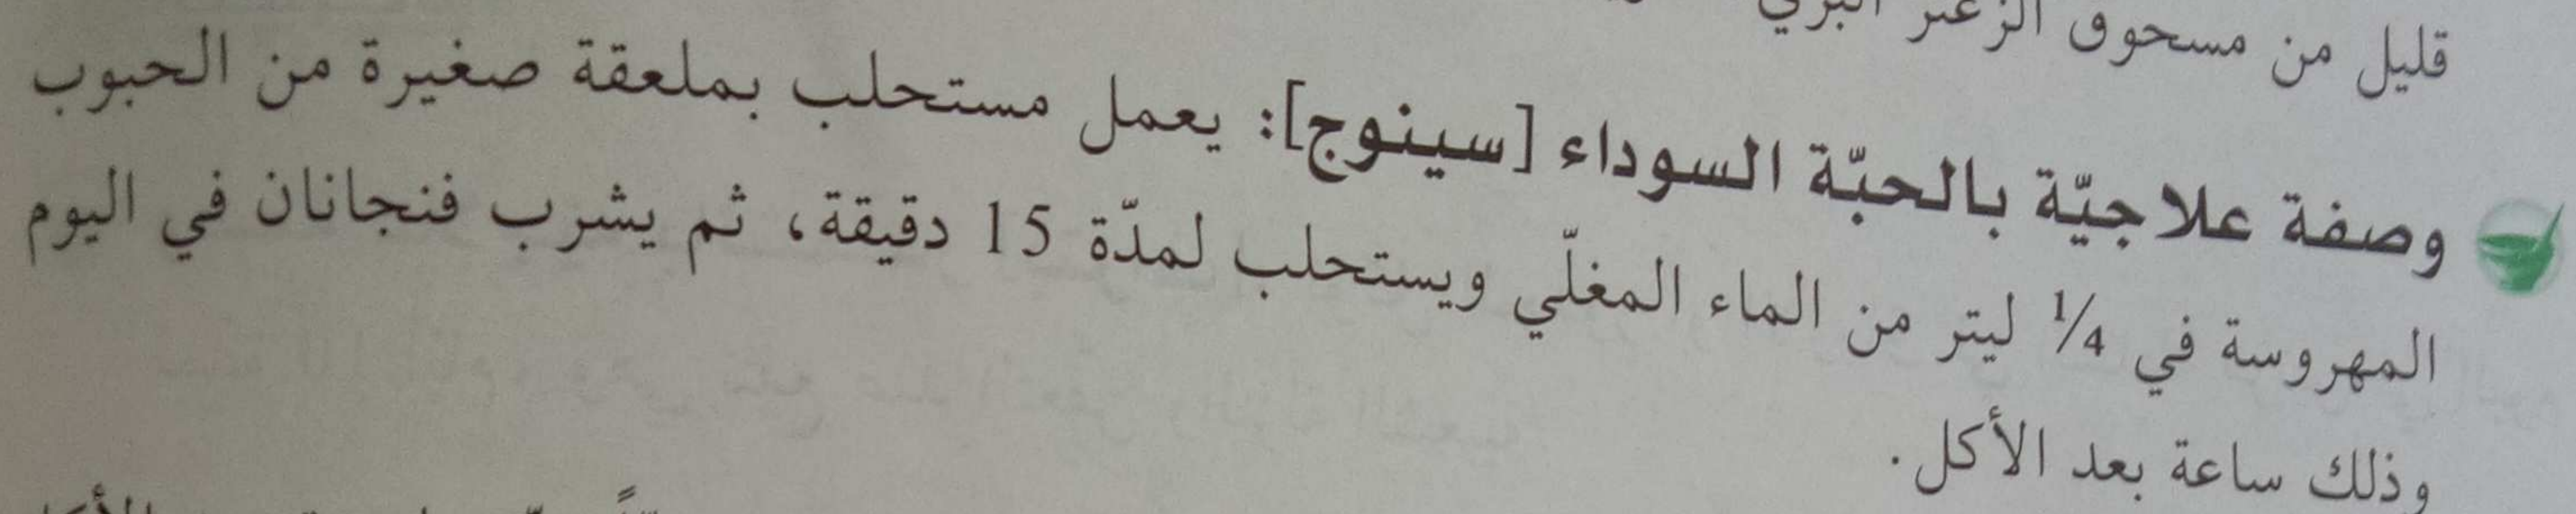 قليل من مسحوق الزعتر البري
وصفة علاجيّة بالحبّة السوداء [سينوج]: يعمل مستحلب بملعقة صغيرة من الحبوب
المهروسة في 1⁄4 ليتر من الماء المغلّي ويستحلب لمدّة 15 دقيقة، ثم يشرب فنجانان في اليوم
وذلك ساعة بعد الأكل.